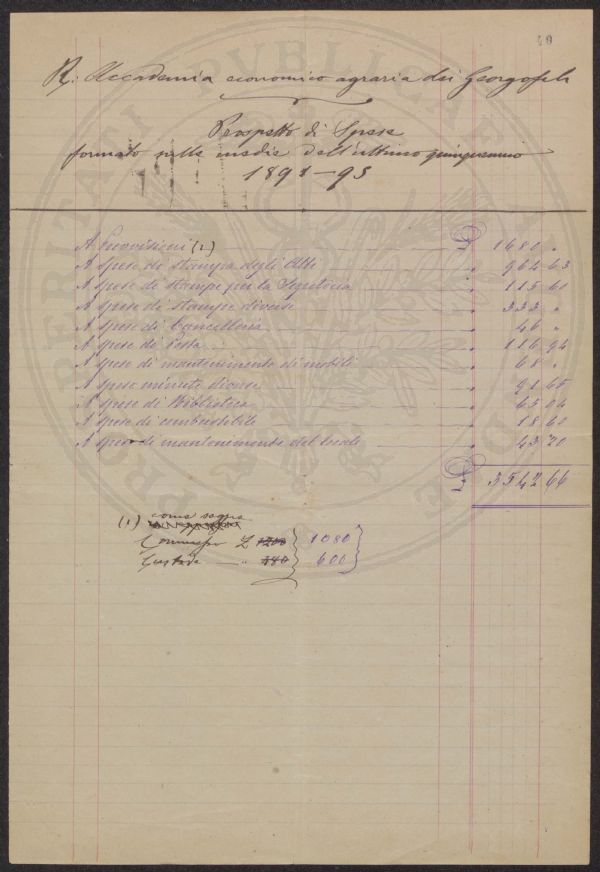 40
R. Accademia economico agraria dei Georgofili
Prospetto di Spese
formato sulle medie dell'ultimo quinquennio
1891-95
PROSPERITATI PVBLICAE
A Provvisioni (1) £ 1680 "
A spese di stampa degli Atti " 964 63
A spese di stampe per la Segreteria " 115 60
A spese di stampe diverse " 333 "
A spese di Cancelleria " 46 "
A spese di Posta " 116 94
A spese di mantenimento di mobili " 68 "
A spese minute diverse " 91 65
A spese di Biblioteca " 65 04
A spese di combustibile " 18 60
A spese di mantenimento del locale " 43 20
£ 3542 66
(1) come sopra
Commesso £ 1200 1080
Custode " 440 600